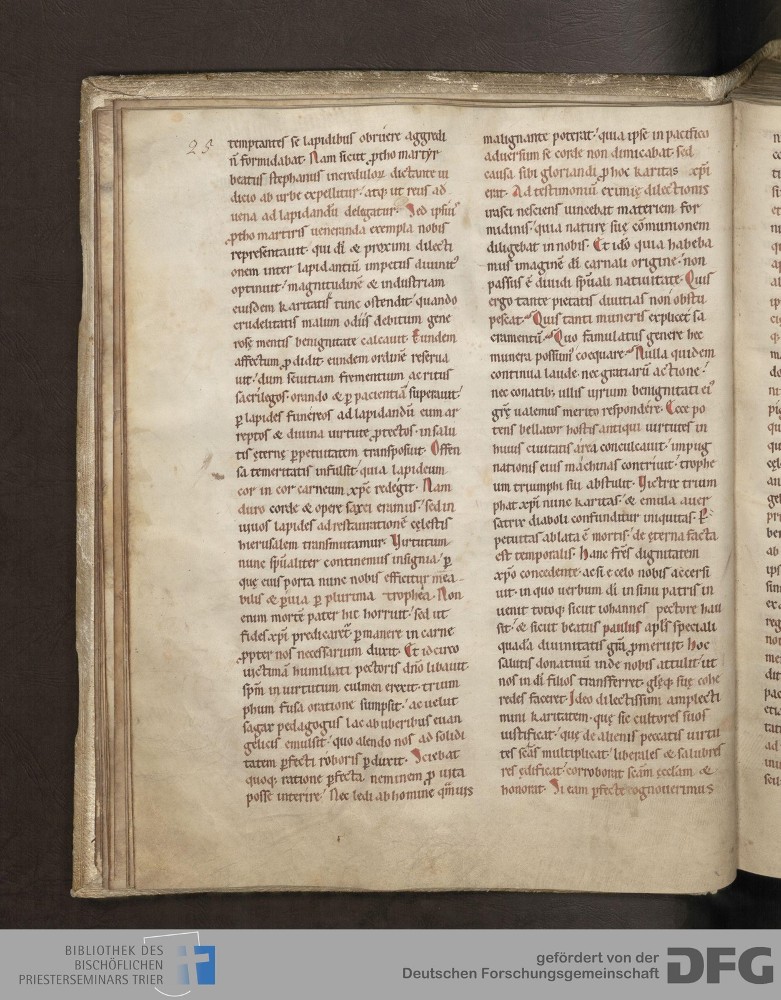 25
temptantes se lapidibus obruere aggredi
n̄ formidabat. Nam sicut ꝓtho martyr
beatus stephanus incredulorꝫ dictante iu
dicio ab urbe expellitur. atq; ut reus ad
uena ad lapidandū delegatur. Sed ipsiuˀ
ꝓtho martiris ueneranda exempla nobis
representauit. qui dī & proximi dilecti
onem inter lapidantiū impetus diuinitˀ
optinuit. magnitudinē & industriam
eiusdem karitatis tunc ostendit. quando
crudelitatis malum odiis debitum gene
rosę mentis benignitate calcauit. Eundem
affectum ꝓdidit. eundem ordinē reserua
uit. dum seuitiam frementium ac ritus
sacrilegos. orando & ꝑ pacientiā superauit.
ꝑ lapides funereos ad lapidandū eum ar
reptos & diuina uirtute ꝓtectos. in salu
tis ęternę ꝑpetuitatem transposuit. Offen
sa temeritatis infulsit. quia lapideum
cor in cor carneum xp̄c redegit. Nam
duro corde & opere saxei eramus. sed in
uiuos lapides ad restaurationē cęlestis
hierusalem transmutamur. Virtutum
nunc sp̄ualiter continemus insignia. ꝑ
quę eius porta nunc nobis efficitur mea
bilis & ꝑuia ꝑ plurima trophea. Non
enim mortē pater hic horruit. sed ut
fides xp̄i predicaretˀ ꝑmanere in carne
ꝓpter nos necessarium duxit. Et idcirco
uictimā humiliati pectoris dn̄o libauit.
sp̄m in uirtutum culmen erexit. trium
phum fusa oratione sumpsit. ac uelut
sagax pedagogus lac ab uberibus euan
gelicis emulsit. quo alendo nos ad solidi
tatem ꝑfecti roboris ꝑduxit. Sciebat
quoq; ratione ꝑfecta. neminem ꝓ uita
posse interire. Nec ledi ab homine qm̄uis
malignante poterat. quia ipse in pacifico
aduersum se corde non dimicabat. sed
causa sibi gloriandi ꝓ hoc karitas xp̄i
erat. Ad testimoniū eximię dilectionis
irasci nesciens uincebat materiem for
midinis. quia nature suę cōmunionem
diligebat in nobis. Et idō quia habeba
mus imaginē dī carnali origine. non
passus ē diuidi sp̄uali natiuitate. Quis
ergo tante pietatis diuitias non obstu
pescat. Quis tanti muneris explicet sa
cramentū. Quo famulatus genere hec
munera possimˀ coequare. Nulla quidem
continua laude. nec gratiarū actione.
nec conatibꝫ ullis uirum benignitati eiˀ
grę ualemus merito respondere. Ecce po
tens bellator hostis antiqui uirtutes in
huius ciuitatis area conculcauit. impug
nationis eius machinas contriuit. trophe
um triumphi sui abstulit. Victrix trium
phat xp̄i nunc karitas. & emula auer
satrix diaboli confunditur iniquitas. P̄
petuitas ablata ē mortis. de ęterna facta
est temporalis. Hanc fr̄es dignitatem
xp̄o concedente. ac si e celo nobis accersi
uit. in quo uerbum di in sinu patris in
uenit totoq; sicut iohannes pectore hau
sit. & sicut beatus paulus apl̄s speciali
quadā diuinitatis gr̄m ꝓmeruit. Hoc
salutis donatiuū inde nobis attulit. ut
nos in dī filios transferret. glęq; suę cohe
redes faceret. Ideo dilectissimi amplecti
mini karitatem. quę sic cultores suos
iustificat. quę de alienis peccatis uirtu
tes sc̄as multiplicat. liberales & salubres
res ędificat. corroborat sc̄am ęcclam &
honorat. Si eam ꝑfecte cognouerimus
BIBLIOTHEK DES
BISCHÖFLICHEN
PRIESTERSEMINARS TRIER
gefördert von der
Deutschen Forschungsgemeinschaft
DFG